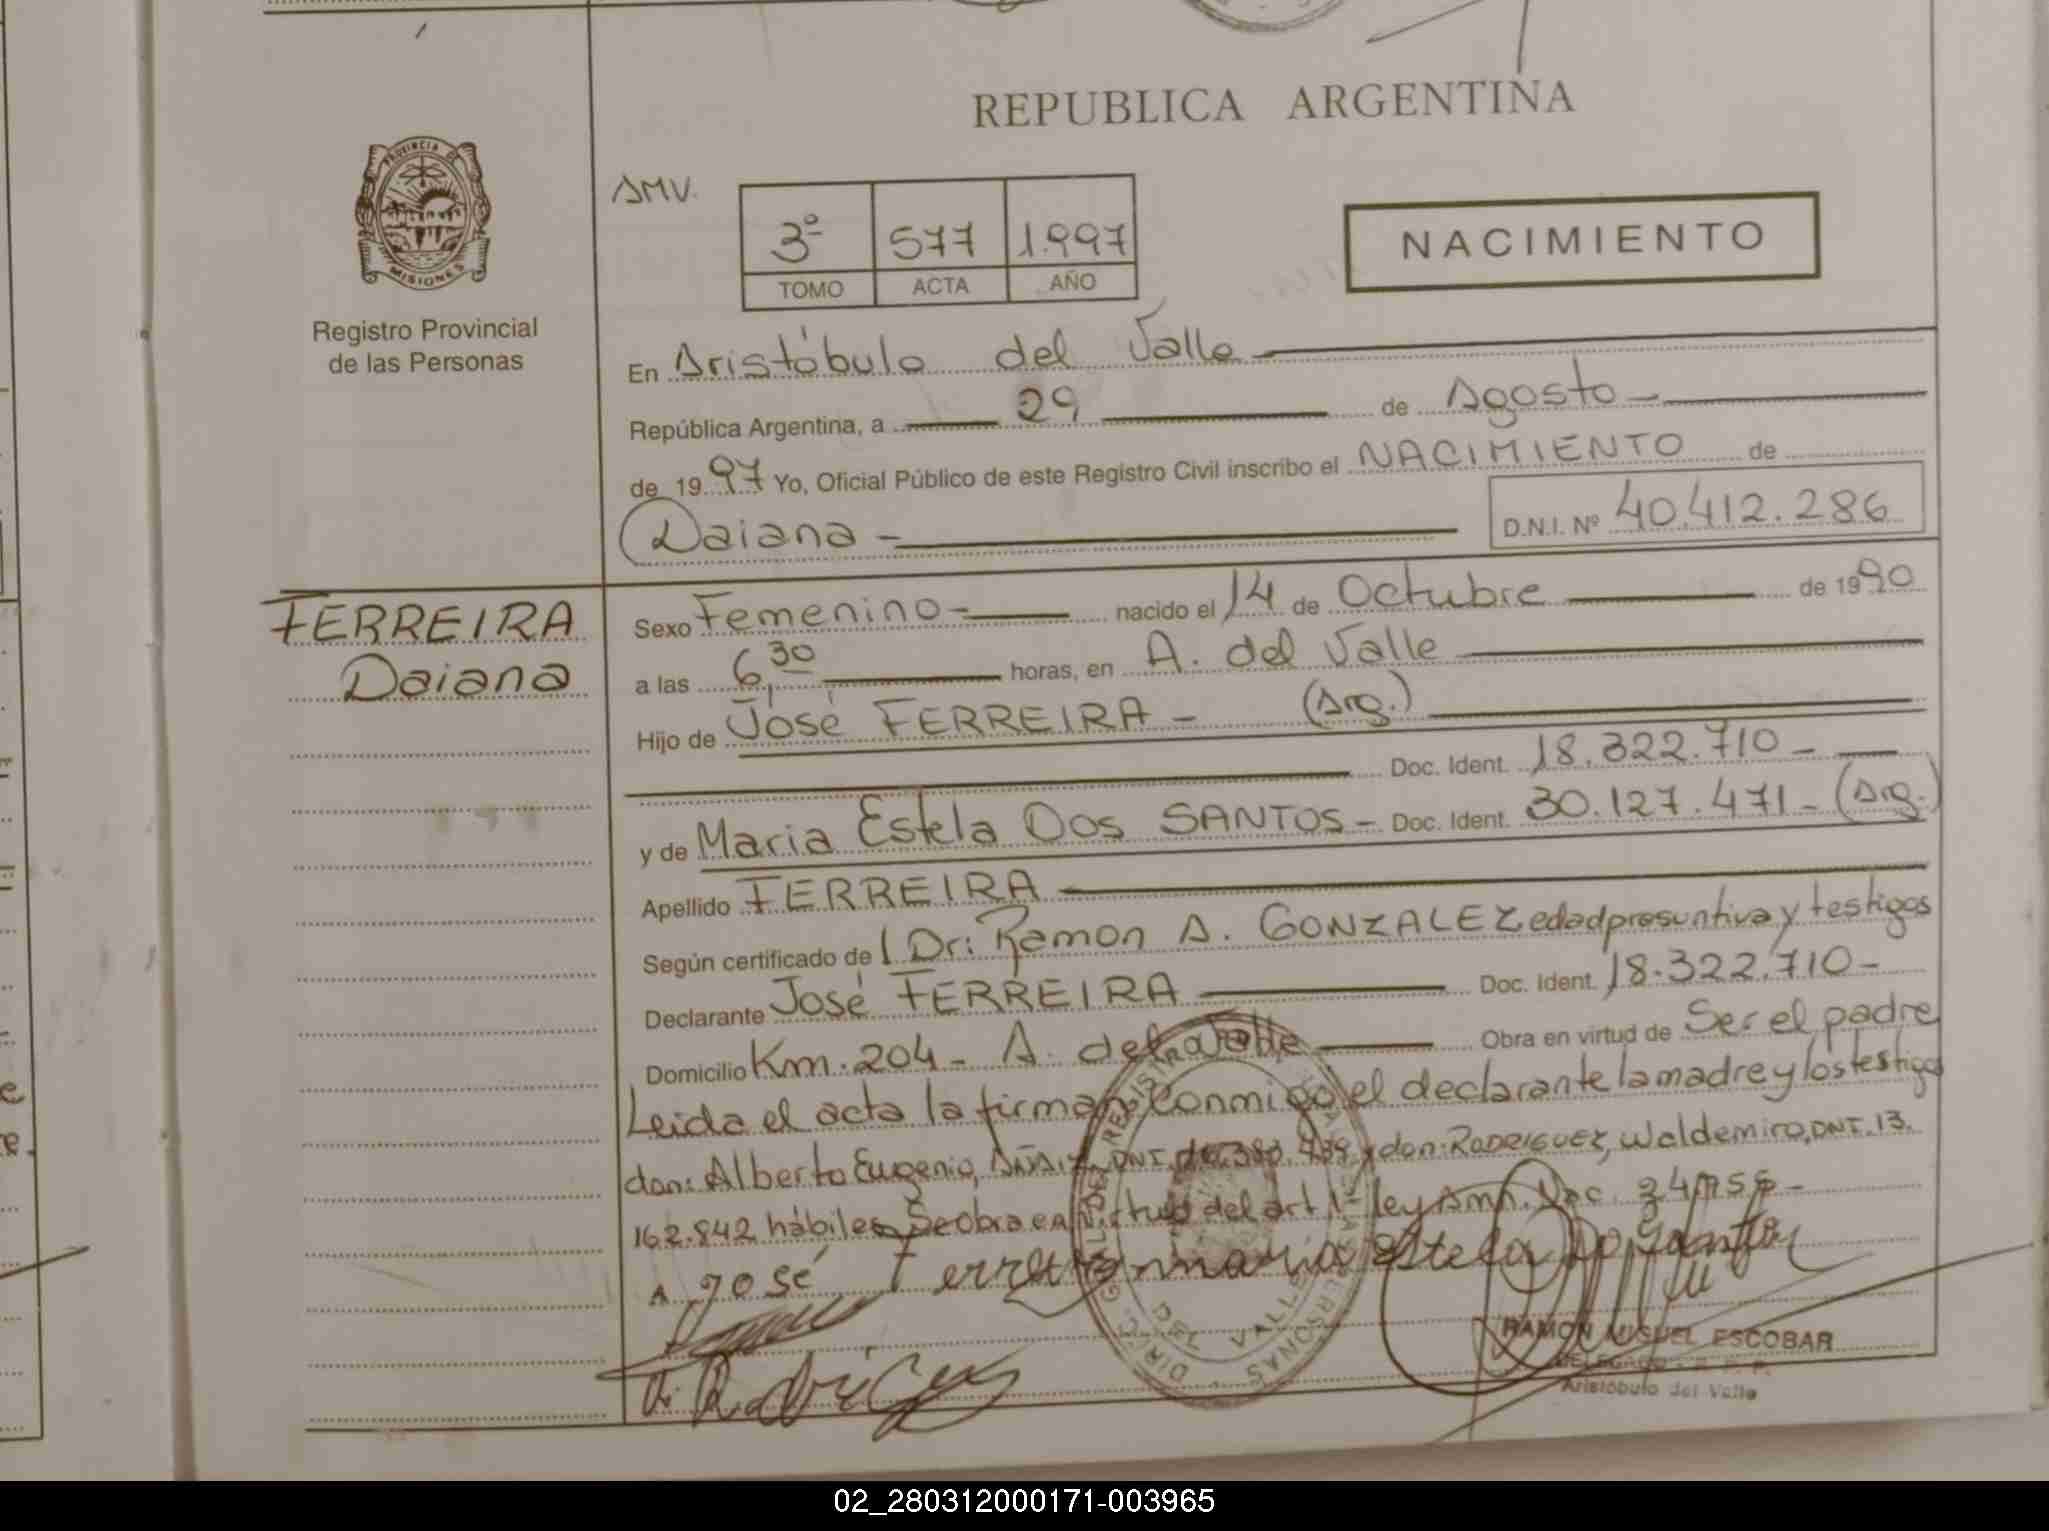 REPUBLICA ARGENTINA
PROVINCIA DE MISIONES
Registro Provincial
de las Personas
AMV.
3º 577 1.997
TOMO ACTA AÑO
NACIMIENTO
En Aristóbulo del Valle
República Argentina, a 29 de Agosto
de 1997 Yo, Oficial Público de este Registro Civil inscribo el NACIMIENTO de
Daiana D.N.I. Nº 40.412.286
FERREIRA
Daiana
Sexo Femenino nacido el 14 de Octubre de 1990
a las 6,30 horas, en A. del Valle
Hijo de José FERREIRA - (Arg.)
Doc. Ident. 18.322.710 -
y de Maria Estela Dos SANTOS - Doc. Ident. 30.127.471 - (Arg.)
Apellido FERREIRA
Según certificado de Dr: Ramon A. GONZALEZ edad presuntiva y testigos
Declarante José FERREIRA Doc. Ident. 18.322.710 -
Domicilio Km. 204 - A. del Valle Obra en virtud de Ser el padre
Leida el acta la firman conmigo el declarante la madre y los testigos
don: Alberto Eugenio, DNI. y don: RODRIGUEZ, Waldemiro, DNI. 13.
162.842 hábiles Se obra en virtud del art. 1º ley
A José Ferreira maria estela Do Santos
RAMON MIGUEL ESCOBAR
Aristóbulo del Valle
02_280312000171-003965